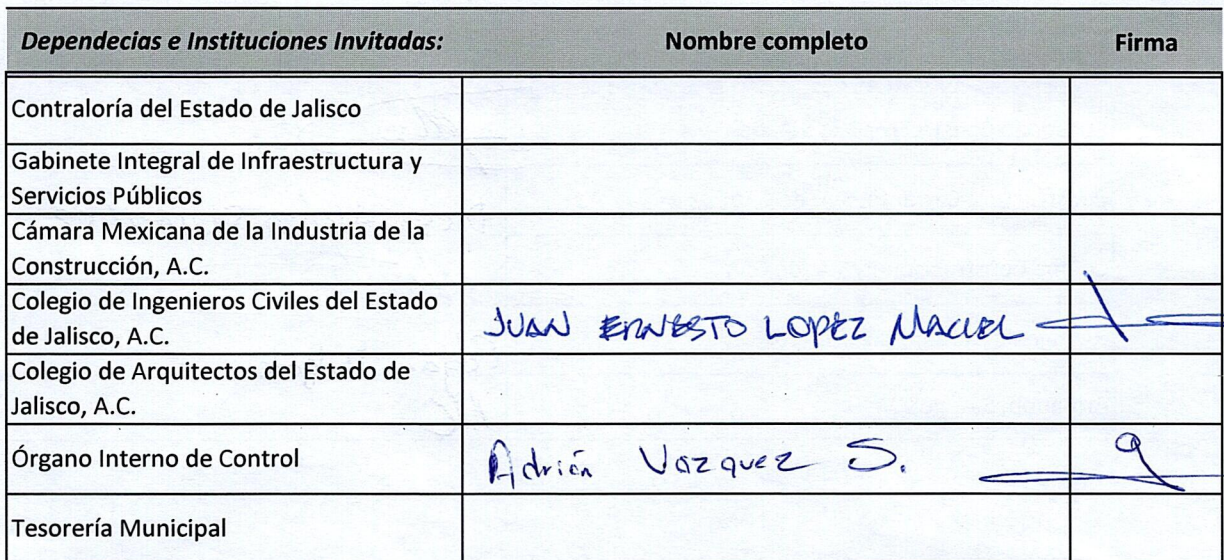 Dependecias e Instituciones Invitadas: Nombre completo Firma
Contraloría del Estado de Jalisco
Gabinete Integral de Infraestructura y
Servicios Públicos
Cámara Mexicana de la Industria de la
Construcción, A.C.
Colegio de Ingenieros Civiles del Estado
de Jalisco, A.C. JUAN ERNESTO LOPEZ MACIEL
Colegio de Arquitectos del Estado de
Jalisco, A.C.
Órgano Interno de Control Adrián Vazquez S.
Tesorería Municipal